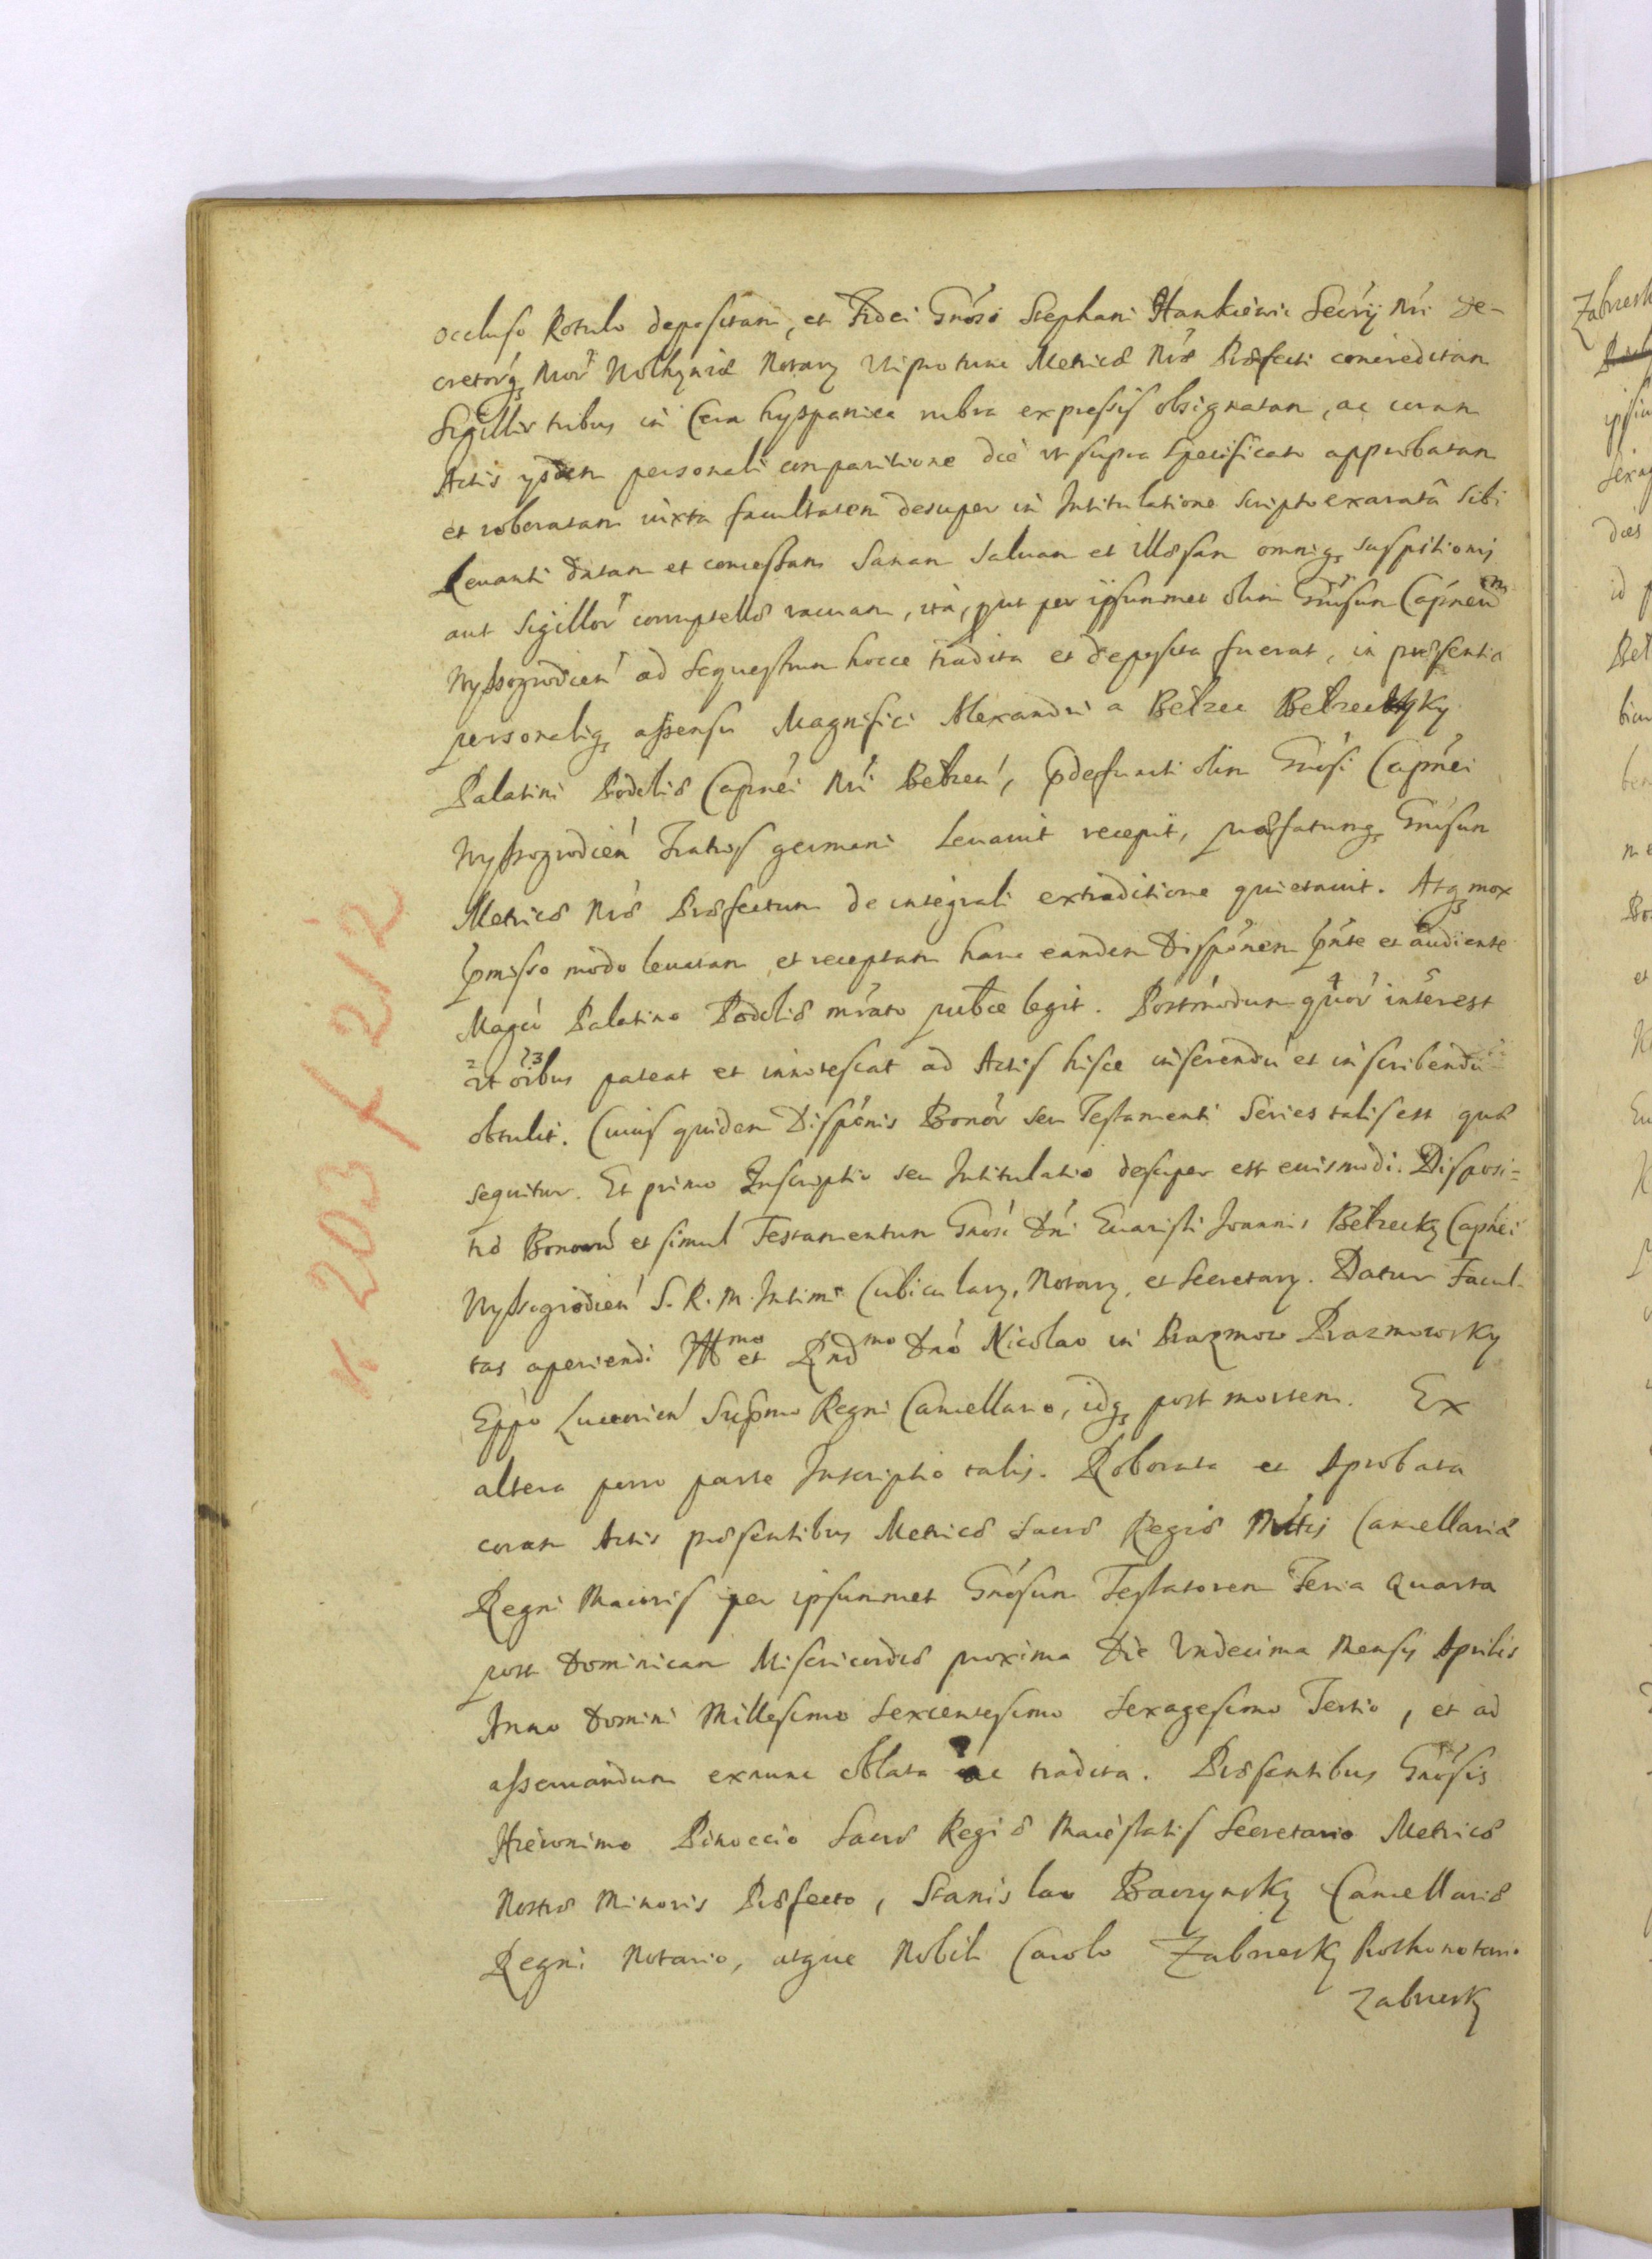 occluso Rotulo depositam, et Fidei Gnosi Stephani Hankiewic Secrij Nri De-
cretorq Nror Wolhyniæ Notarÿ Uti protunc Metricæ Nræ Præfecti concreditam
Sigillis tribus in Cera hyspanica rubra expressis obsignatam, ac coram
Actis ijsdem personali comparitione die ut supra specificato approbatam
et roboratam iuxta facultatem desuper in Intitulatione scripto exaratâ sibi
Levanti datam et concessam Sanam Salvam et illæsam omniq suspitionis
aut Sigillor corruptelæ vacuam, ita, put per ipsummet olim Gnosum Capneum
Wyssogrodien ad sequestrum hocce tradita et deposita fuerat, in præsentia
personaliq assensu Magnifici Alexandri a Bełzec Bełzecky
Palatini Podoliæ Capnei Nri Bełzen, pdefuncti olim Gnosi Capnei
Wyssogrodien Fratris germani Levavit recepit, præfatumq Gnosum
Metricæ Nræ Præfectum de integrali extraditione quietavit. Atq mox
pmisso modo levatam et receptam hanc eandem Dispônem pnte et audiente
Magco Palatino Podoliæ mrato publce legit. Postmodum quor interest
ut oibus pateat et innotescat ad Actis hisce inserendũ et inscribendũ
obtulit. Cuius quidem Dispônis Bonor seu Testamenti Series talis est quæ
sequitur. Et primo Inscriptio seu Intitulatio desuper est euismodi. Disposi=
tio Bonorũ et simul Testamentum Gnosi Dni Evaristi Joannis Bełzecky Capnei
Wyssogrodien S. R. M. Intimi Cubicularÿ, Notarÿ, et Secretarÿ. Datur Facul
tas aperiendi Illmo et Rndmo Dno Nicolao in Prazmow Prazmowsky
Eppo Luceorien Supmo Regni Cancellario, idq post mortem. Ex
altera porro parte Inscriptio talis. Roborata et Aprobata
coram Actis præsentibus Metricæ Sacræ Regiæ Mttis Cancellariæ
Regni Maioris per ipsummet Gnosum Testatorem Feria Quarta
post Dominicam Misericordiæ proxima Die Undecima Mensis Aprilis
Anno Domini Millesimo Sexcentesimo Sexagesimo Tertio, et ad
asservandum exnunc oblata ac tradita. Præsentibus Gnosis
Hieronimo Pinoccio Sacræ Regiæ Maiestatis Secretario Metricæ
Nostræ Minoris Præfecto, Stanislao Baczynsky Cancellariæ
Regni Notario, atque Nobili Carolo Zabnesky Prothonotario
Zabnesky
K. 203 f 212